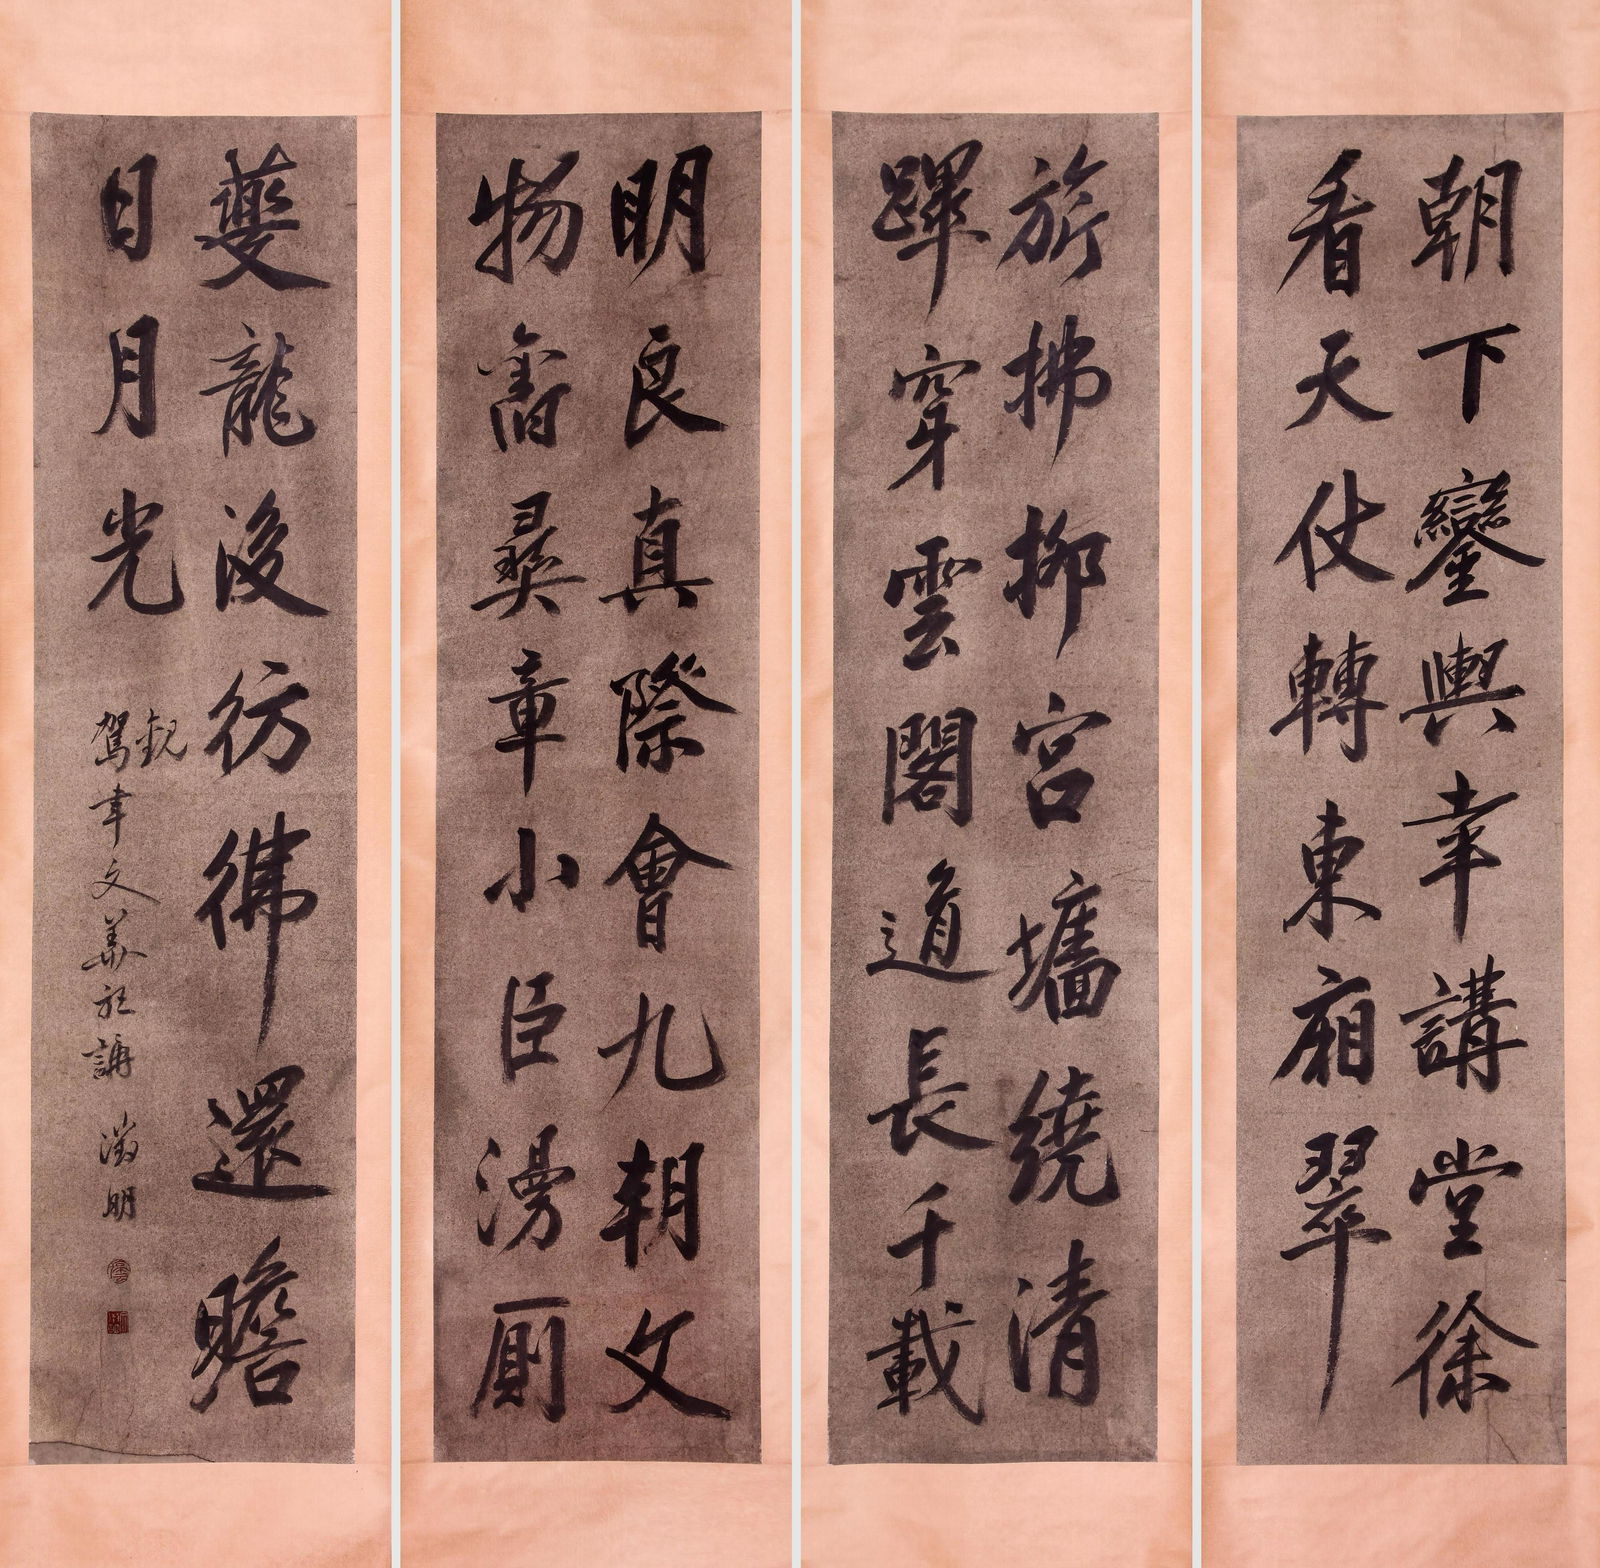 朝下鑾輿幸講堂徐
看天仗轉東廂翠
旂拂柳宮墻繞清
蹕穿雲閣道長千載
明良真際會九朝文
物舊彝章小臣漫厠
夔龍後彷彿還瞻
日月光
觀
駕幸文華誦 徵明